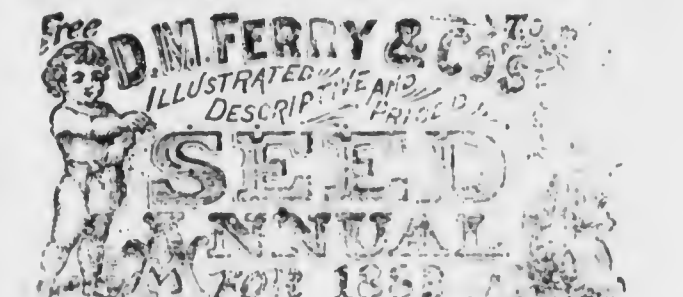 Free
D.M. FERRY & Co's
ILLUSTRATED, DESCRIPTIVE AND PRICED
SEED
ANNUAL
FOR